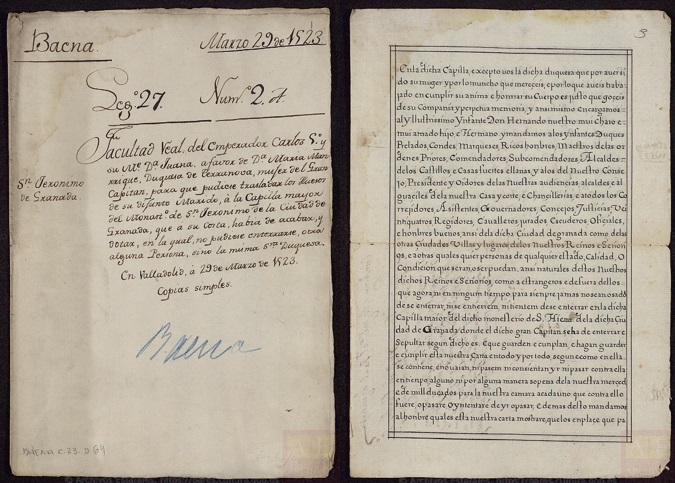 Baena.
Marzo 29 de 1523
Leg.º 27. Num.º 2. A.
Facultad Real del Emperador Carlos 5.º y
su M.e D.ª Juana, a favor de D.ª Maria Man
rrique, Duquesa de Terranova, muger del Gran
Capitan, para que pudiese trasladar los Huesos
de su difunto Marido, à la Capilla mayor
del Monast.º de S.n Jeronimo de la Ciudad de
Granada, que a su costa, habia de acabar, y
dotar, en la qual, no pudiese enterrarse, otra
alguna Persona, sino la misma S.ra Duquesa.
S.n Jeronimo
de Granada.
En Valladolid, a 29 de Marzo de 1523.
Copias simples.
Baena
BAENA C.23. D 64
3
Enla dicha Capilla, excepto vos la dicha duquesa que por aver si
do su muger y por lo mucho que mereceis, e por lo que aveis traba
jado en cumplir su anima e honrrar su Cuerpo es justo que goceis
de su Compañia y perpetua memoria, y ansi mismo Encargamos
al y Illustrissimo Ynfante Don Hernando nuestro mui charo e
mui amado hijo, e Hermano, y mandamos a los ynfantes Duques
Prelados, Condes, Marqueses, Ricos hombres, Maestres de las or
denes Priores, Comendadores, Subcomendadores, Alcaldes
de los Castillos e Casas fuertes e llanas, y a los de el Nuestro Conse
jo, Presidente y Oidores de las Nuestras audiencias alcaldes e al
guaciles de la nuestra Casa y corte, e Chancillerias, e a todos los Co
rregidores, Asistentes, Governadores, Concejos, Justicias, Ve
intiquatros Regidores, Cavalleros, jurados, Escuderos, Oficiales,
e hombres buenos, ansi de la dicha Ciudad de granada como de las
otras Ciudades Villas y lugares de los Nuestros Reinos e Señori
os, e a otras quales quier personas de qualquier estado, Calidad, O
Condicion que sean, o ser puedan, ansi naturales de stos Nuestros
dichos Reinos e Señorios, como a estrangeros e de fuera dellos
que agora ni en ningun tiempo para siempre jamas no sean osados
de se enterrar, ni se entierren, ni intenten de se enterrar en la dicha
Capilla maior del dicho monesterio de S. Hieronimo de la dicha Ciu
dad de Granada donde el dicho gran Capitan se ha de enterrar e
Sepultar segun dicho es. E que guarden e cumplan, e hagan guardar
e cumplir esta nuestra Carta en todo y por todo, segun e como en ella
se contiene, e no vaian, ni pasen ni consientan yr ni pasar contra ella
en tiempo alguno ni por alguna manera so pena de la nuestra merced
e de mill ducados para la nuestra camara a cada uno que contra ello
fuere, o pasare, o yntentare de yr o pasar, e demas desto mandamos
al hombre que les esta nuestra carta mostrare, que los enplace que pa